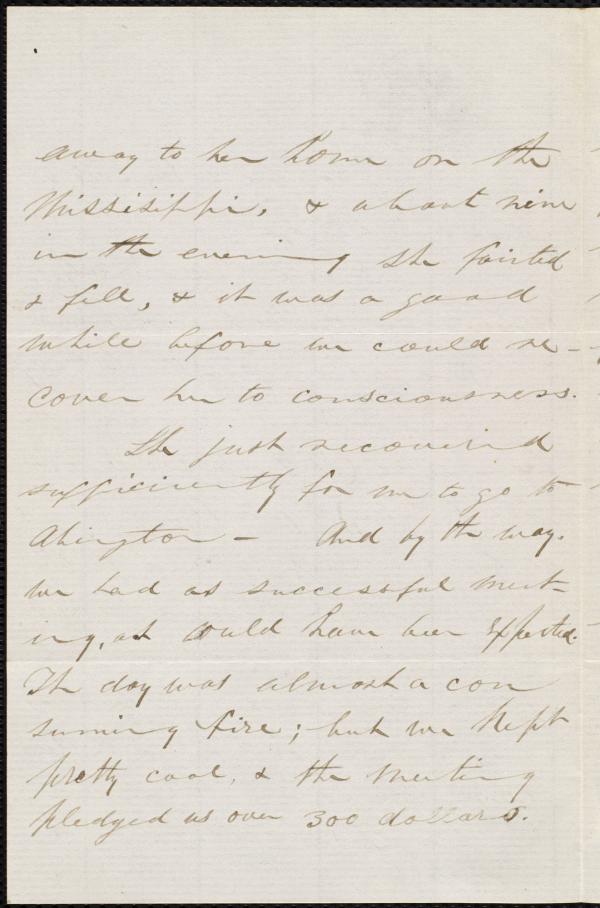 away to her home on the
Mississippi, & about nine
in the evening she fainted
& fell, & it was a good
while before we could re-
cover her to consciousness.
She just recovered
sufficiently for me to go to
Abington — And by the way,
we had as successful meet-
ing, as could have been expected.
The day was almost a con
suming fire; but we kept
pretty cool, & the meeting
pledged us over 300 dollars.